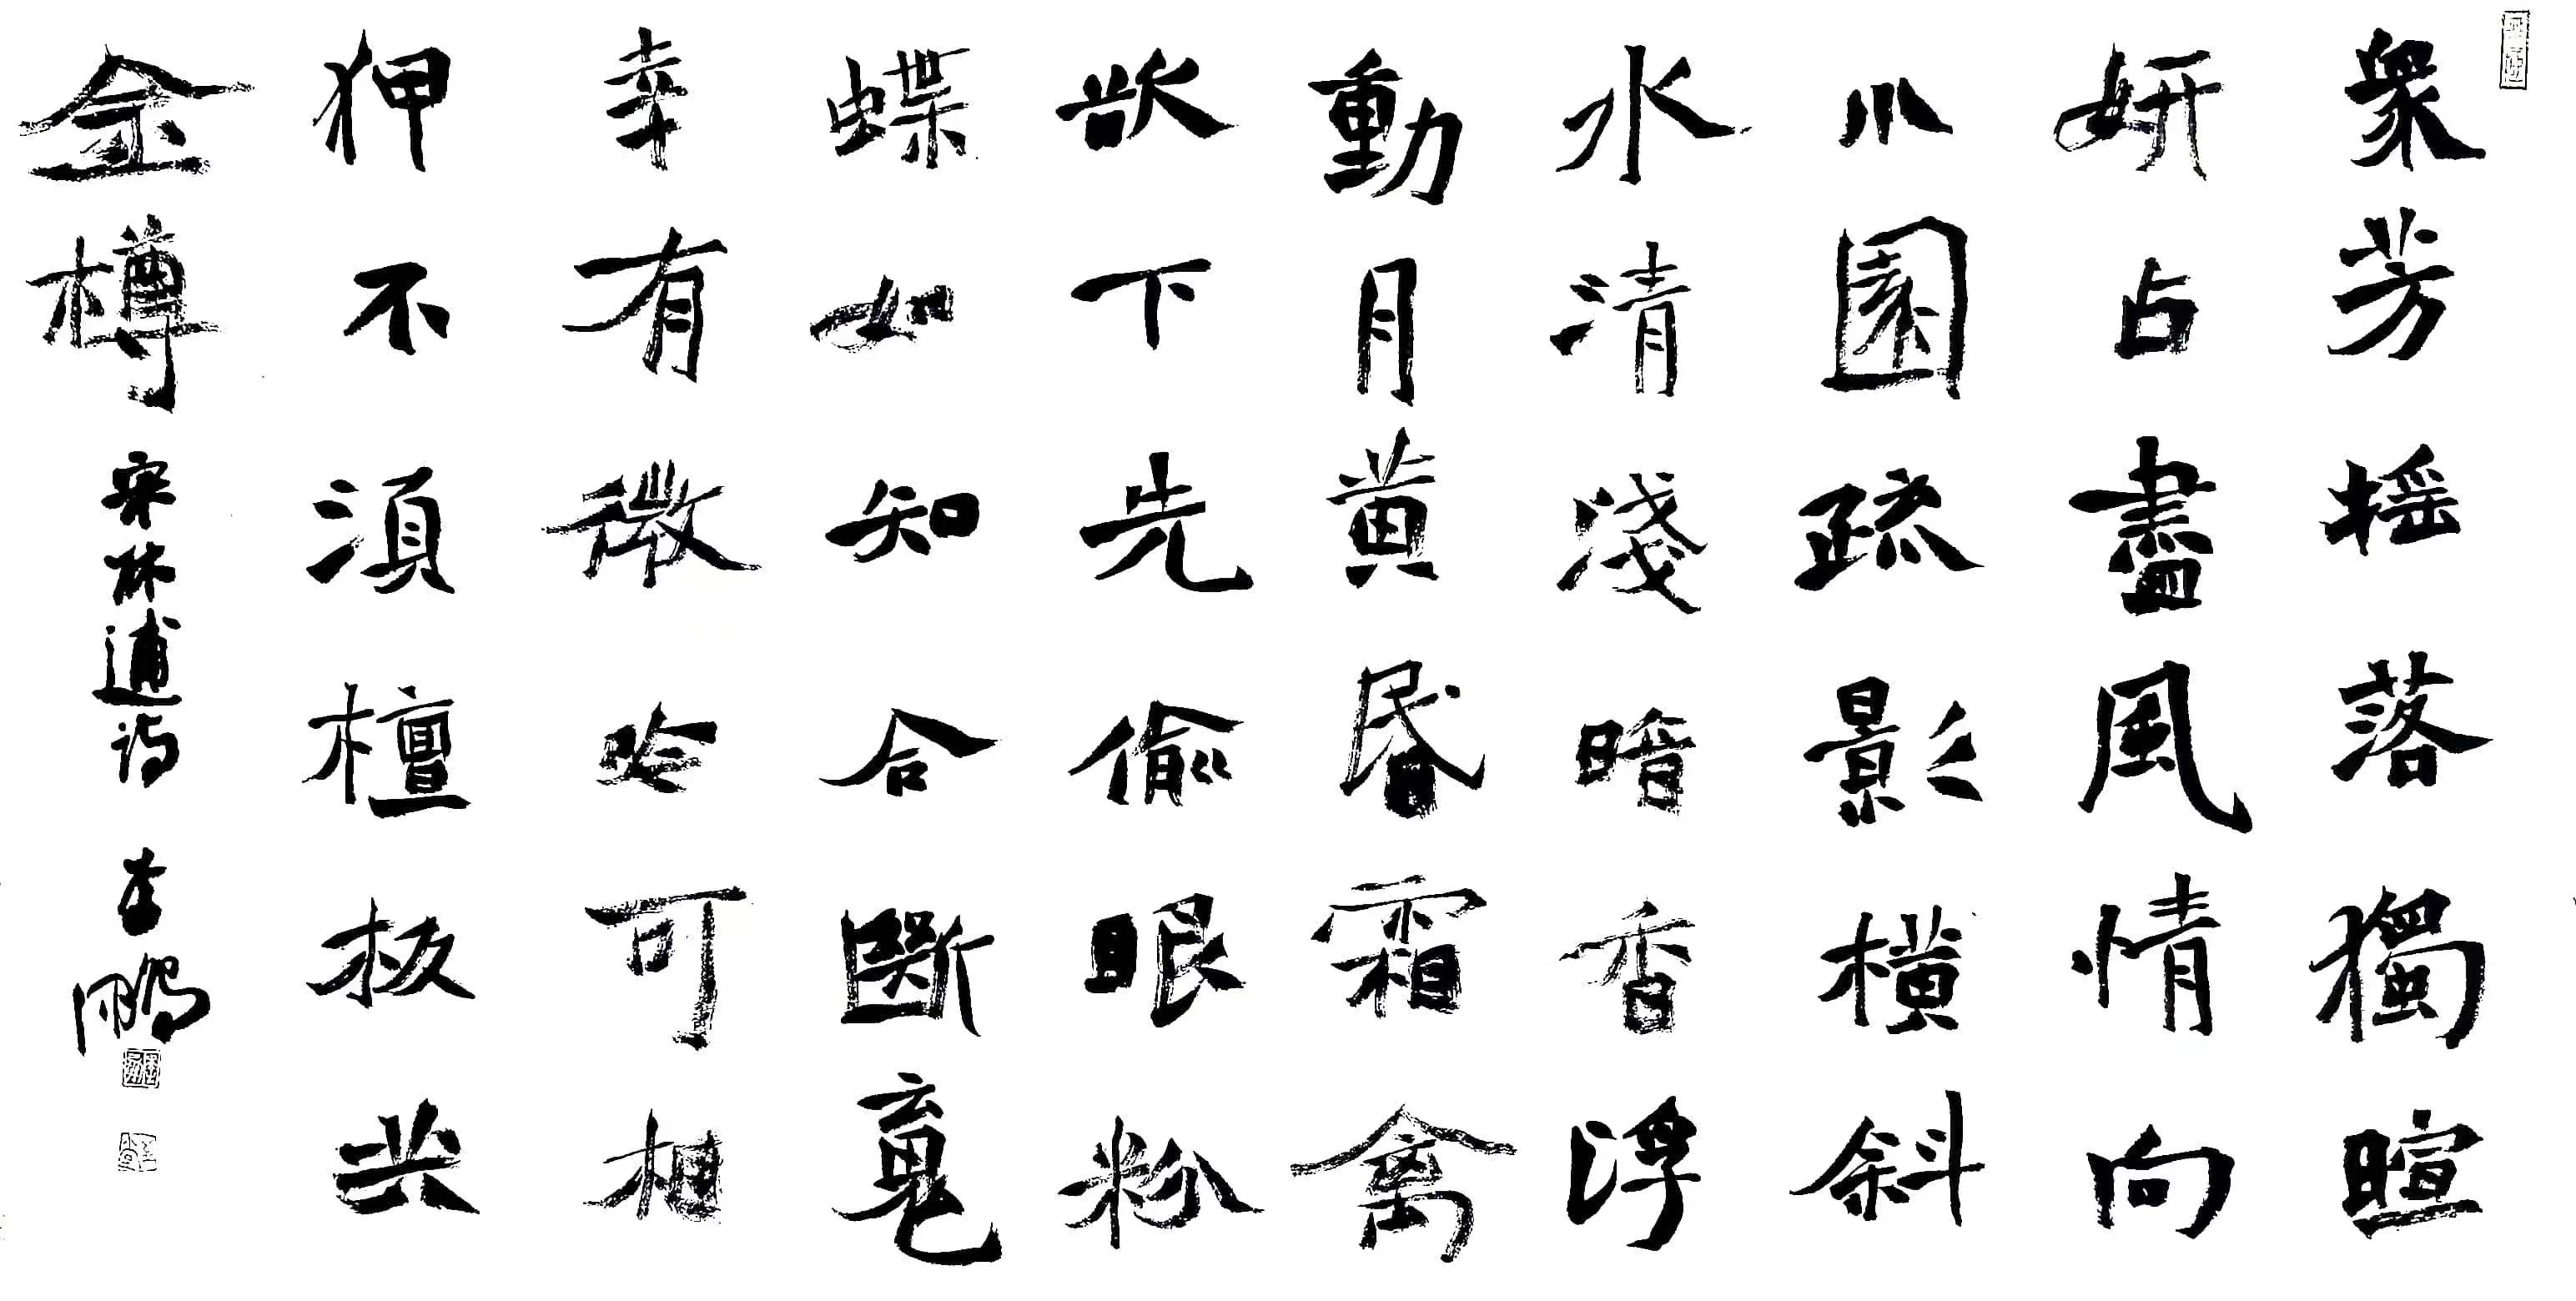 衆芳摇落獨暄
妍占盡風情向
小園疏影橫斜
水清淺暗香浮
動月黃昏霜禽
欲下先偷眼粉
蝶如知合斷䰟
幸有微吟可相
狎不須檀板共
金樽
宋林逋詩 李鵬